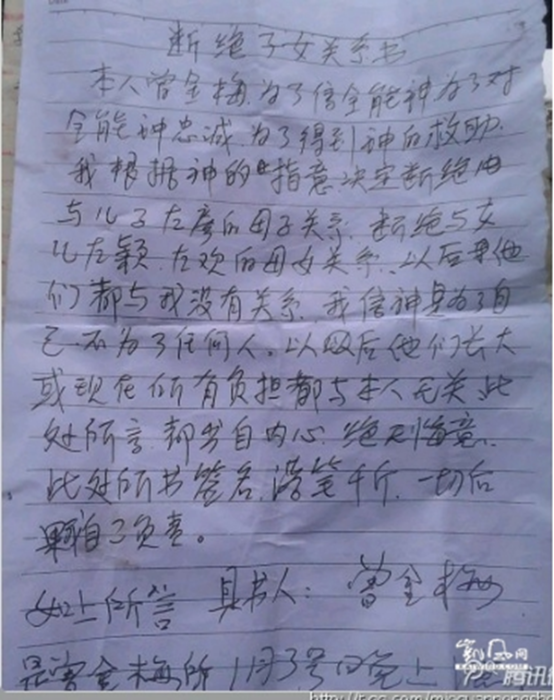 断绝子女关系书
本人曾金梅.为了信全能神为了对
全能神忠诚.为了得到神的救助.
我根据神的指意.决定断绝
与儿子左彦的母子关系.断绝与女
儿左颖.左欢的母女关系.以后他
们都与我没有关系.我信神是为了自
己.不为了任何人。以后他们长大
或现在所有负担都与本人无关.此
处所言.都出自内心.绝无悔意.
此处所书签名.落笔千斤.一切后
果自己负责。
如上所言 具书人: 曾金梅
是曾金梅所 1月3号晚上
凯风网
腾讯